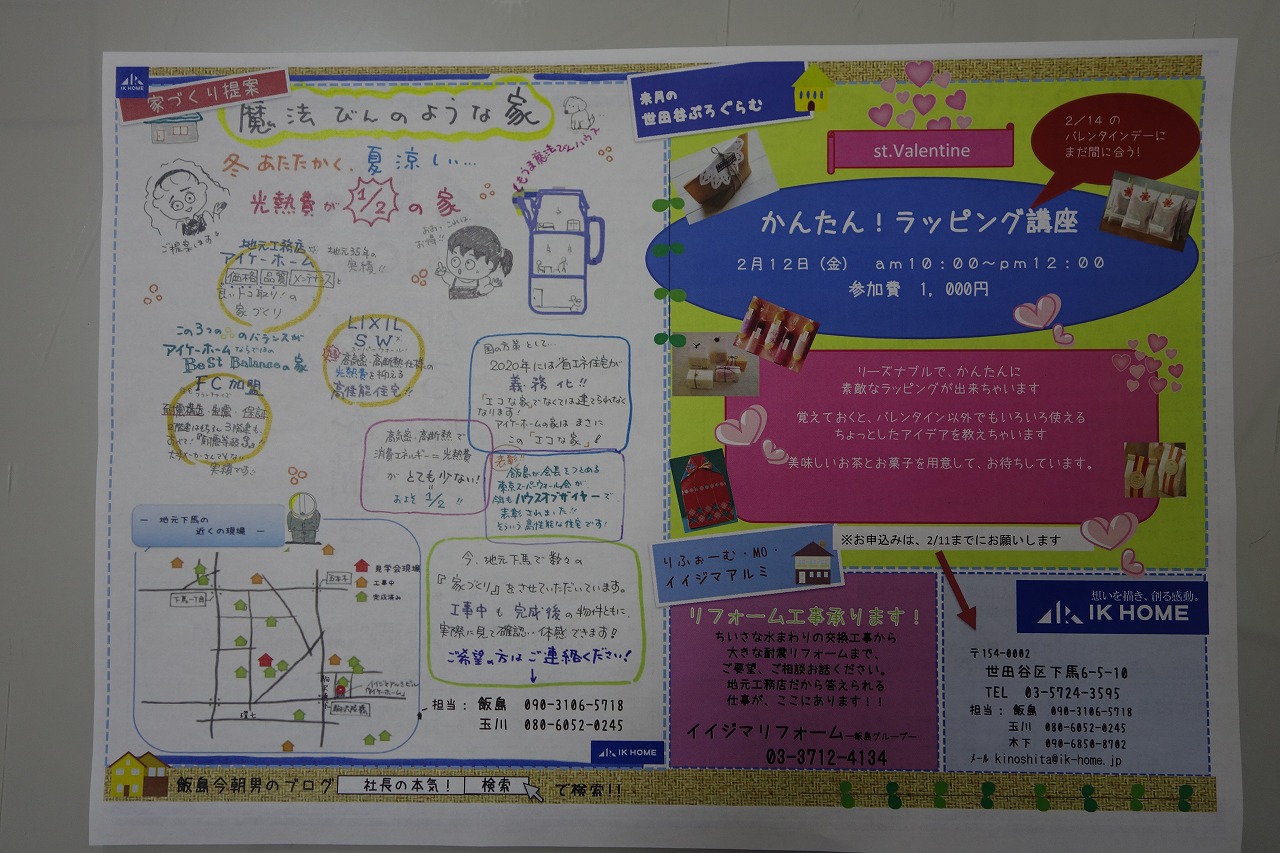 IK HOME
家づくり提案
魔法びんのような家
冬あたたかく、夏涼しい…
光熱費が1/2の家
ご提案します。
地元工務店な
アイケーホーム
地元35年の
実績!!
価格 品質 メンテナンスと
良いトコ取り!の
家づくり
この3つの のバランスが
アイケーホームならではの
Best Balanceの家
FC加盟
フランチャイズ
耐震構造・制震・保証
実績です
LIXIL
SW
スーパーウォール
高気密・高断熱仕様の
光熱費を抑える
高性能住宅!!
国の方策として…
2020年には"省エネ住宅"が
義務化!!
「エコな家」でなくては建てられなく
なります!
アイケーホームの家はまさに
この「エコな家」!
高気密・高断熱で
消費エネルギー=光熱費
がとても少ない!
およそ1/2!!
表彰!!
飯島が会長をつとめる
東京スーパーウォール会が
今回もハウスオブザイヤーで
表彰されました!!
そういう高性能な住宅です!
― 地元下馬の
近くの現場 ―
見学会現場
工事中
完成済み
下馬一丁目
環七
今、地元下馬で数々の
『家づくり』をさせていただいています。
工事中も完成後の物件ともに、
実際に見て確認・体感できます!
ご希望の方はご連絡ください!
担当: 飯島 090-3106-5718
玉川 080-6052-0245
IK HOME
飯島今朝男のブログ 社長の本気! 検索 で検索!!
来月の
世田谷ぷろぐらむ
st.Valentine
2/14 の
バレンタインデーに
まだ間に合う!
かんたん!ラッピング講座
2月12日(金) am10:00~pm12:00
参加費 1,000円
リーズナブルで、かんたんに
素敵なラッピングが出来ちゃいます
覚えておくと、バレンタイン以外でもいろいろ使える
ちょっとしたアイデアを教えちゃいます
美味しいお茶とお菓子を用意して、お待ちしています。
※お申込みは、2/11までにお願いします
りふぉーむ・MO・
イイジマアルミ
リフォーム工事承ります!
ちいさな水まわりの交換工事から
大きな耐震リフォームまで、
ご要望、ご相談お話ください。
地元工務店だから答えられる
仕事が、ここにあります!!
イイジマリフォーム―飯島グループ―
03-3712-4134
想いを描き、創る感動。
IK HOME
〒154-0002
世田谷区下馬6-5-10
TEL 03-5724-3595
担当: 飯島 090-3106-5718
玉川 080-6052-0245
木下 090-6850-8702
メール kinoshita@ik-home.jp